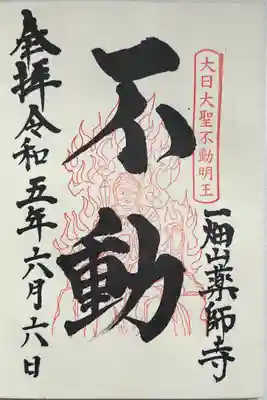 大日大聖不動明王
一畑山薬師寺
不動
奉拝令和五年六月六日